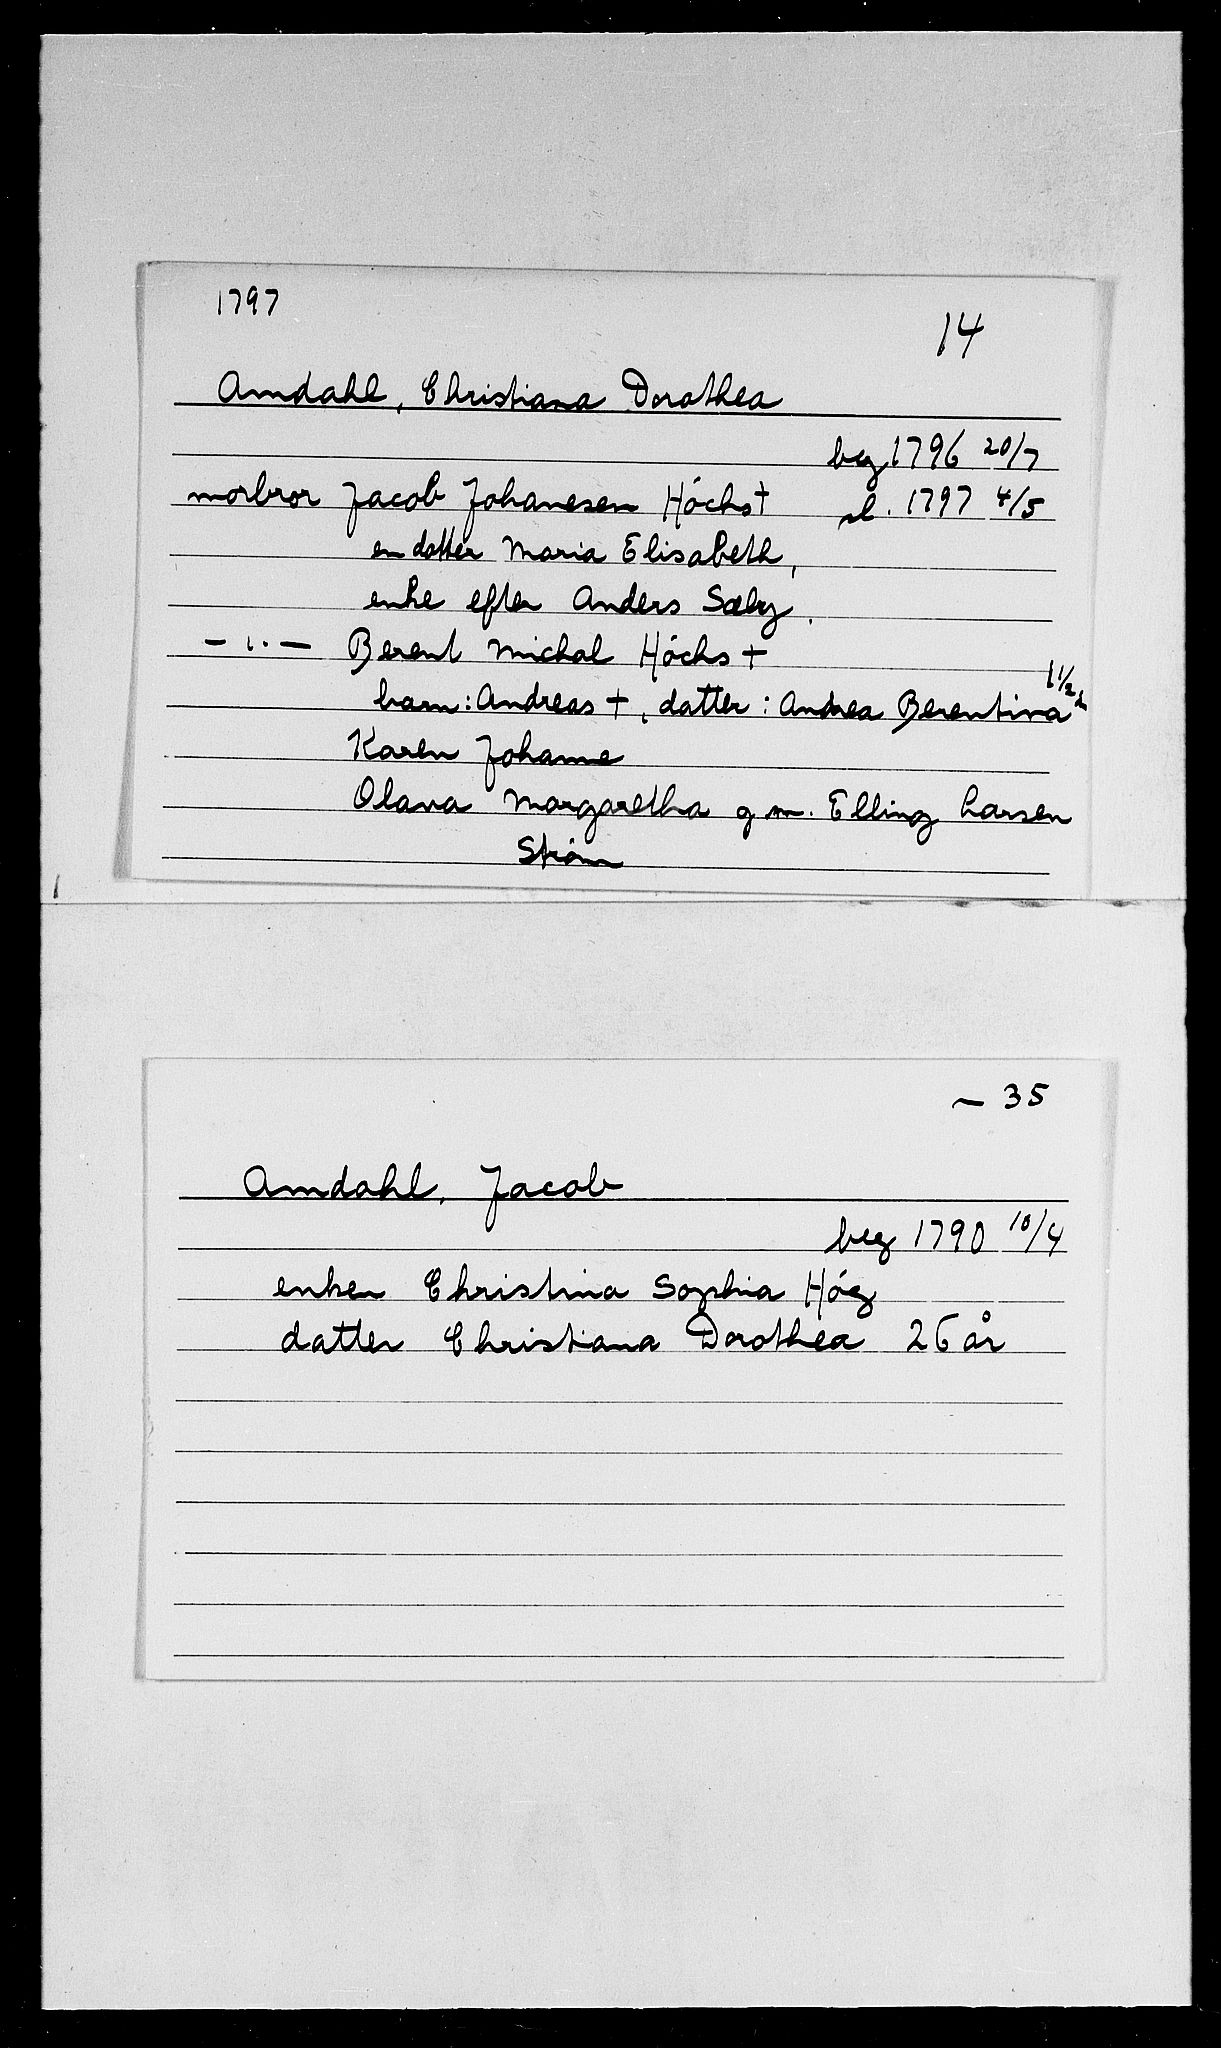 1797
14
Amdahl, Christiana Dorothea
beg 1796 20/7
morbror Jacob Johanesen Höchs† sl. 1797 4/5
en datter Maria Elisabeth,
enke efter Anders Sæby.
— ,, — Berent Michal Höchs †
barn: Andreas †, datter: Andrea Berentina 1 1/2
Karen Johanne
Olava Margaretha g m. Elling Larsen
Strøm
— 35
Amdahl, Jacob
beg 1790 10/4
enken Christina Sophia Hóg
datter Christiana Dorothea 26 år